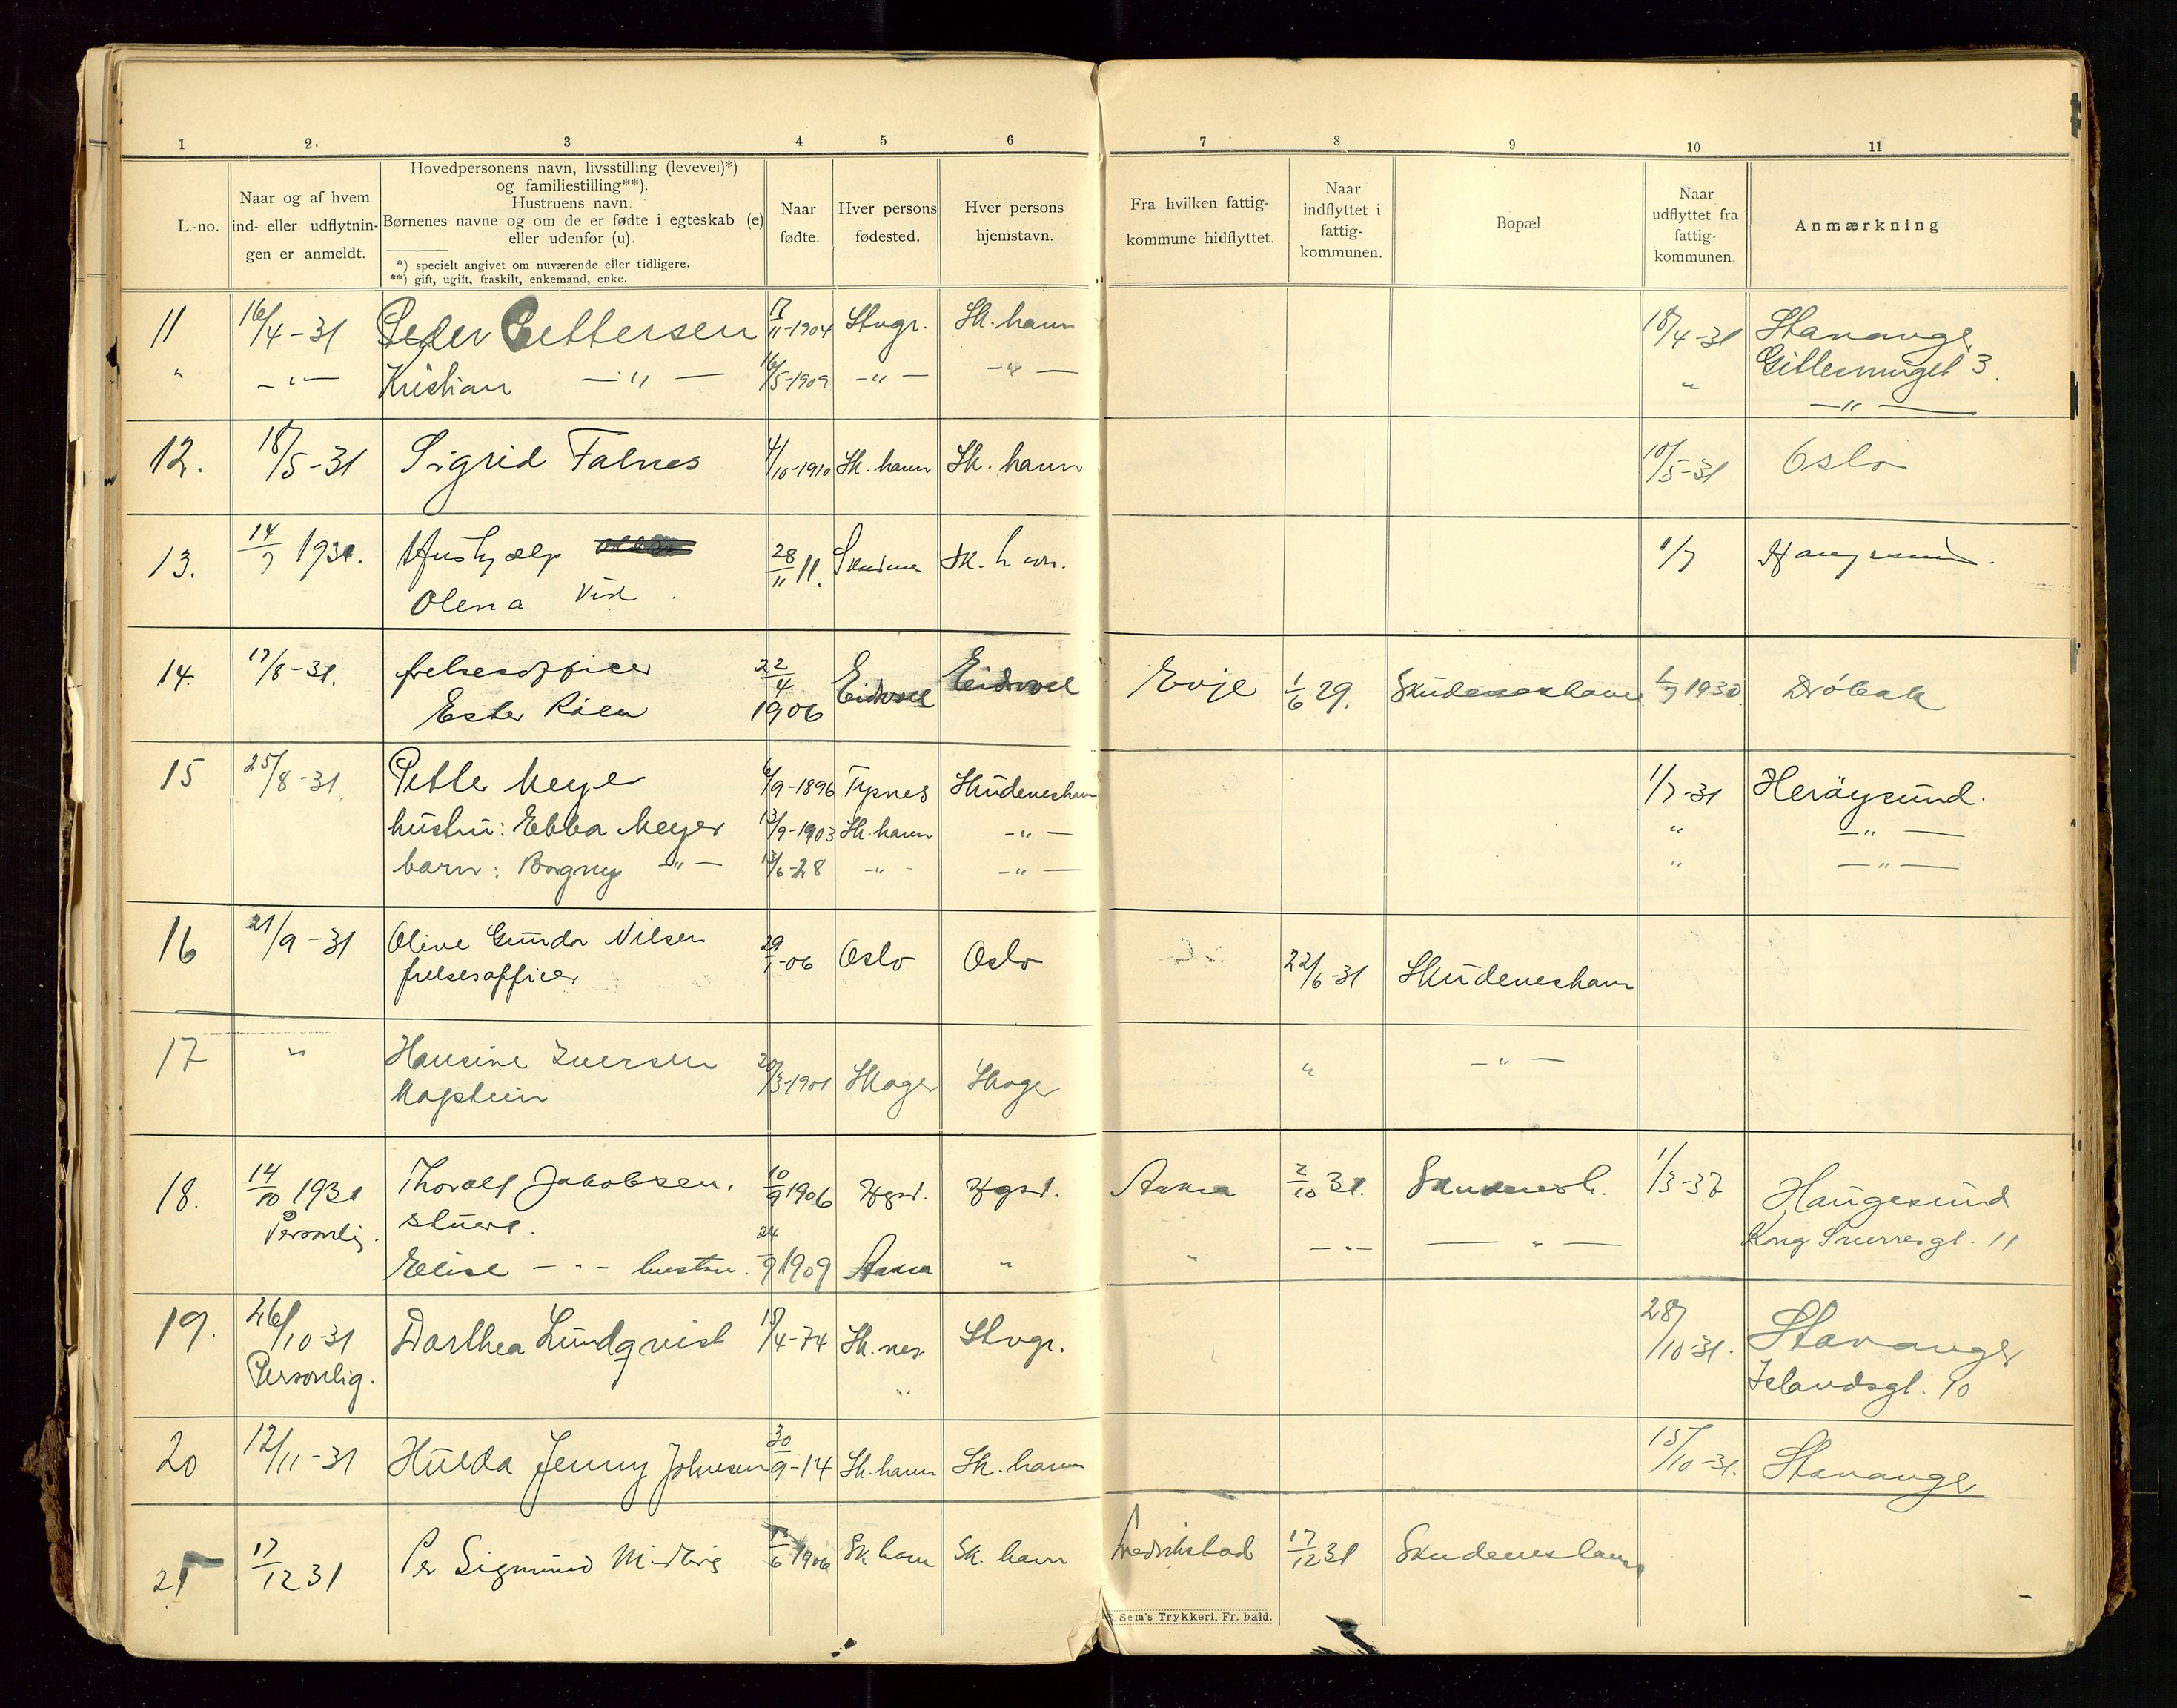 1 2. 3 4 5 6 7 8 9 10 11
L.-no.
Naar og af hvem
ind- eller udflytnin-
gen er anmeldt.
Hovedpersonens navn, livsstilling (levevei)*)
og familiestilling**).
Hustruens navn.
Børnenes navne og om de er fødte i egteskab (e)
eller udenfor (u).
*) specielt angivet om nuværende eller tidligere.
**) gift, ugift, fraskilt, enkemand, enke.
Naar
fødte.
Hver persons
fødested.
Hver persons
hjemstavn.
Fra hvilken fattig-
kommune hidflyttet.
Naar
indflyttet i
fattig-
kommunen.
Bopæl
Naar
udflyttet fra
fattig-
kommunen.
Anmærkning
11 16/4-31 Peder Pettersen 17/11-1904 Stvgr. Sk. havn 18/4-31 Stavanger
Gittesmuget 3.
" -"- Kristian -"- 16/5-1909 -"- -"- " -"-
12. 18/5-31 Sigrid Falnes 4/10-1910 Sk. havn Sk. havn 10/5-31 Oslo
13. 14/7 1931. Hushjælp 28/11 11. Skudenes Sk. havn. 1/7 Haugesund.
Olena Vik.
14. 17/8-31. frelsesofficer 22/4 1906 Eidsvoll Eidsvoll Evje 1/6 29. Skudeneshavn 1/7 1930 Drøbak
Ester Råen
15 25/8-31. Petter Meyer 6/9-1896 Tysnes Skudeneshavn 1/7-31 Herøysund.
hustru: Ebba Meyer 13/9-1903 Sk. havn -"- " -"-
barn: Bogny -"- 13/6-28 -"- -"- " -"-
16 21/9-31 Olive Gunda Nilsen 29/1-06 Oslo Oslo 22/6-31 Skudeneshavn
frelsesofficer
17 " Hansine Iversen 20/3-1901 Skoger Skoger " -"-
kaptein
18. 14/10 1931 Thoralf Jakobsen. 10/9 1906 Hgsd. Hgsd. Aakra 2/10 31. Skudenesh. 1/3-37 Haugesund
Personlig. stuert. Kong Sverresgt. 11
Elise -"- hustru. 24/9 1909 Aakra " " -"- -"-
19. 26/10-31 Dorthea Lundqvist 18/4-74 Sk. nes Stvgr. 28/10-31. Stavanger
Personlig. Islandsgt. 10
20 12/11-31 Hulda Jenny Johnsen 30/9-14 Sk. havn Sk. havn 15/10-31. Stavanger
21 17/12 31 Per Sigmund Midbrig /6 1906 Sk havn Sk. havn Fredrikstad 17/12 31 Skudeneshavn
Sem's Trykkeri, Fr. hald.